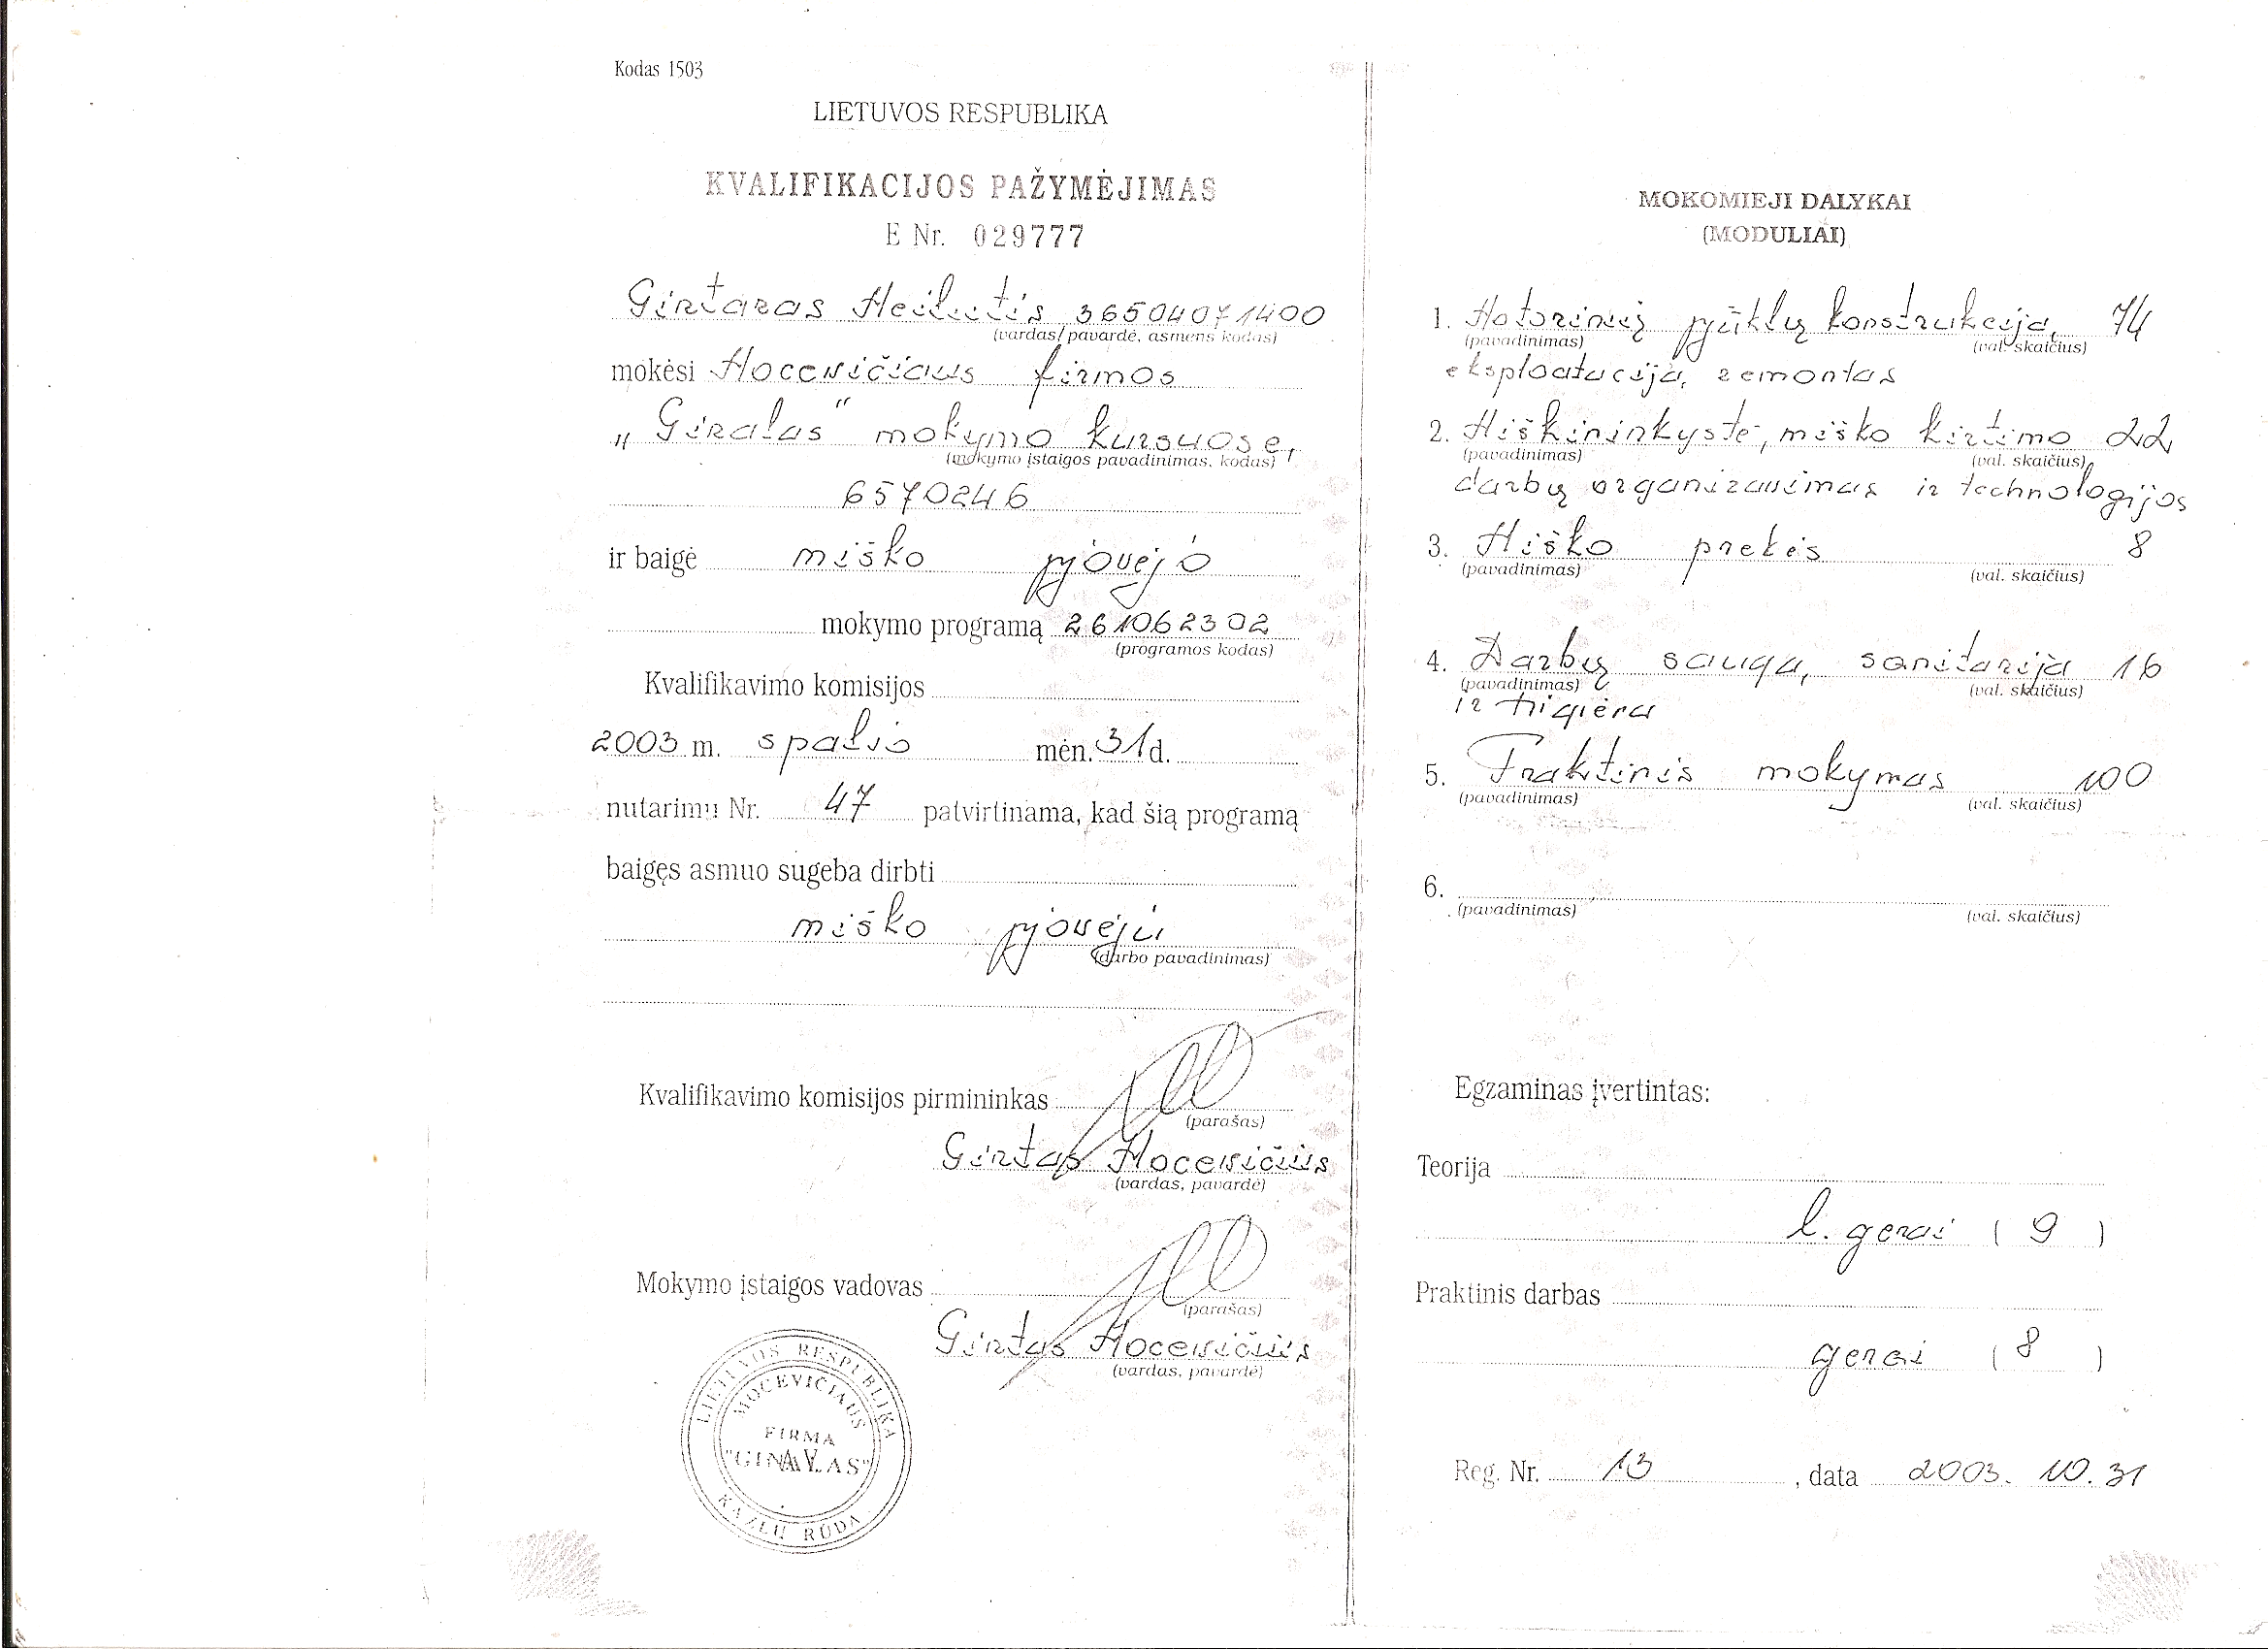 Kodas 1503
LIETUVOS RESPUBLIKA
KVALIFIKACIJOS PAŽYMĖJIMAS
E Nr. 029777
Gintaras Meilutis 36504071400
(vardas, pavardė, asmens kodas)
mokėsi Mocevičiaus firmos
"Giralas" mokymo kursuose,
(mokymo įstaigos pavadinimas, kodas)
6570246
ir baigė miško pjovėjo
mokymo programą 261062302
(programos kodas)
Kvalifikavimo komisijos
2003 m. spalio mėn. 31 d.
nutarimu Nr. 47 patvirtinama, kad šią programą
baigęs asmuo sugeba dirbti
miško pjovėju
(darbo pavadinimas)
Kvalifikavimo komisijos pirmininkas
(parašas)
Gintas Mocevičius
(vardas, pavardė)
Mokymo įstaigos vadovas
(parašas)
Gintas Mocevičius
(vardas, pavardė)
LIETUVOS RESPUBLIKA
MOCEVIČIAUS
FIRMA
KAZLŲ RŪDA
MOKOMIEJI DALYKAI
(MODULIAI)
1. Motorinių pjūklų konstrukcija, 74
(pavadinimas) (val. skaičius)
eksploatacija, remontas
2. Miškininkystė, miško kirtimo 22
(pavadinimas) (val. skaičius)
darbų organizavimas ir technologijos
3. Miško prekės 8
(pavadinimas) (val. skaičius)
4. Darbų sauga, sanitarija 16
(pavadinimas) (val. skaičius)
ir higiena
5. Praktinis mokymas 100
(pavadinimas) (val. skaičius)
6.
(pavadinimas) (val. skaičius)
Egzaminas įvertintas:
Teorija
l. gerai ( 9 )
Praktinis darbas
gerai ( 8 )
Reg. Nr. 13 , data 2003. 10. 31